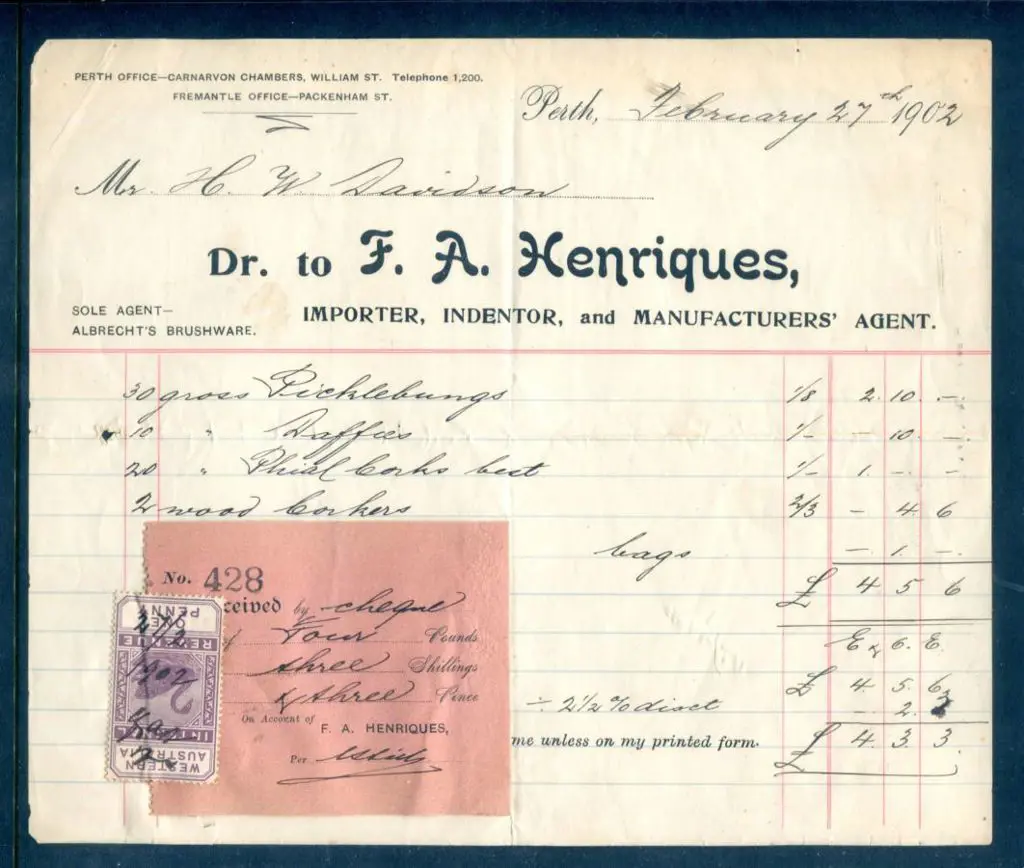 PERTH OFFICE—CARNARVON CHAMBERS, WILLIAM ST. Telephone 1,200.
FREMANTLE OFFICE—PACKENHAM ST.
Perth, February 27th 1902
Mr. H. W. Davidson
Dr. to F. A. Henriques,
SOLE AGENT—
ALBRECHT'S BRUSHWARE.
IMPORTER, INDENTOR, and MANUFACTURERS' AGENT.
30 gross Picklebungs 1/8 2. 10. -.
10 " Daffies 1/- - 10. -.
20 " Phial Corks best 1/- 1. - . -
2 wood Corkers 2/3 - 4. 6
bags - . 1. - .
£ 4 5 6
E & O. E.
£ 4. 5. 6
÷ 2 1/2 % disct - 2. 3
£ 4. 3. 3.
me unless on my printed form.
No. 428
ceived by cheque
f Four Pounds
three Shillings
& three Pence
On Account of
F. A. HENRIQUES,
Per
ONE PENNY
REVENUE
27/2
1902
WESTERN
AUSTRALIA